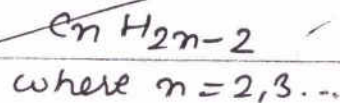 CnH2n-2
where n=2,3...